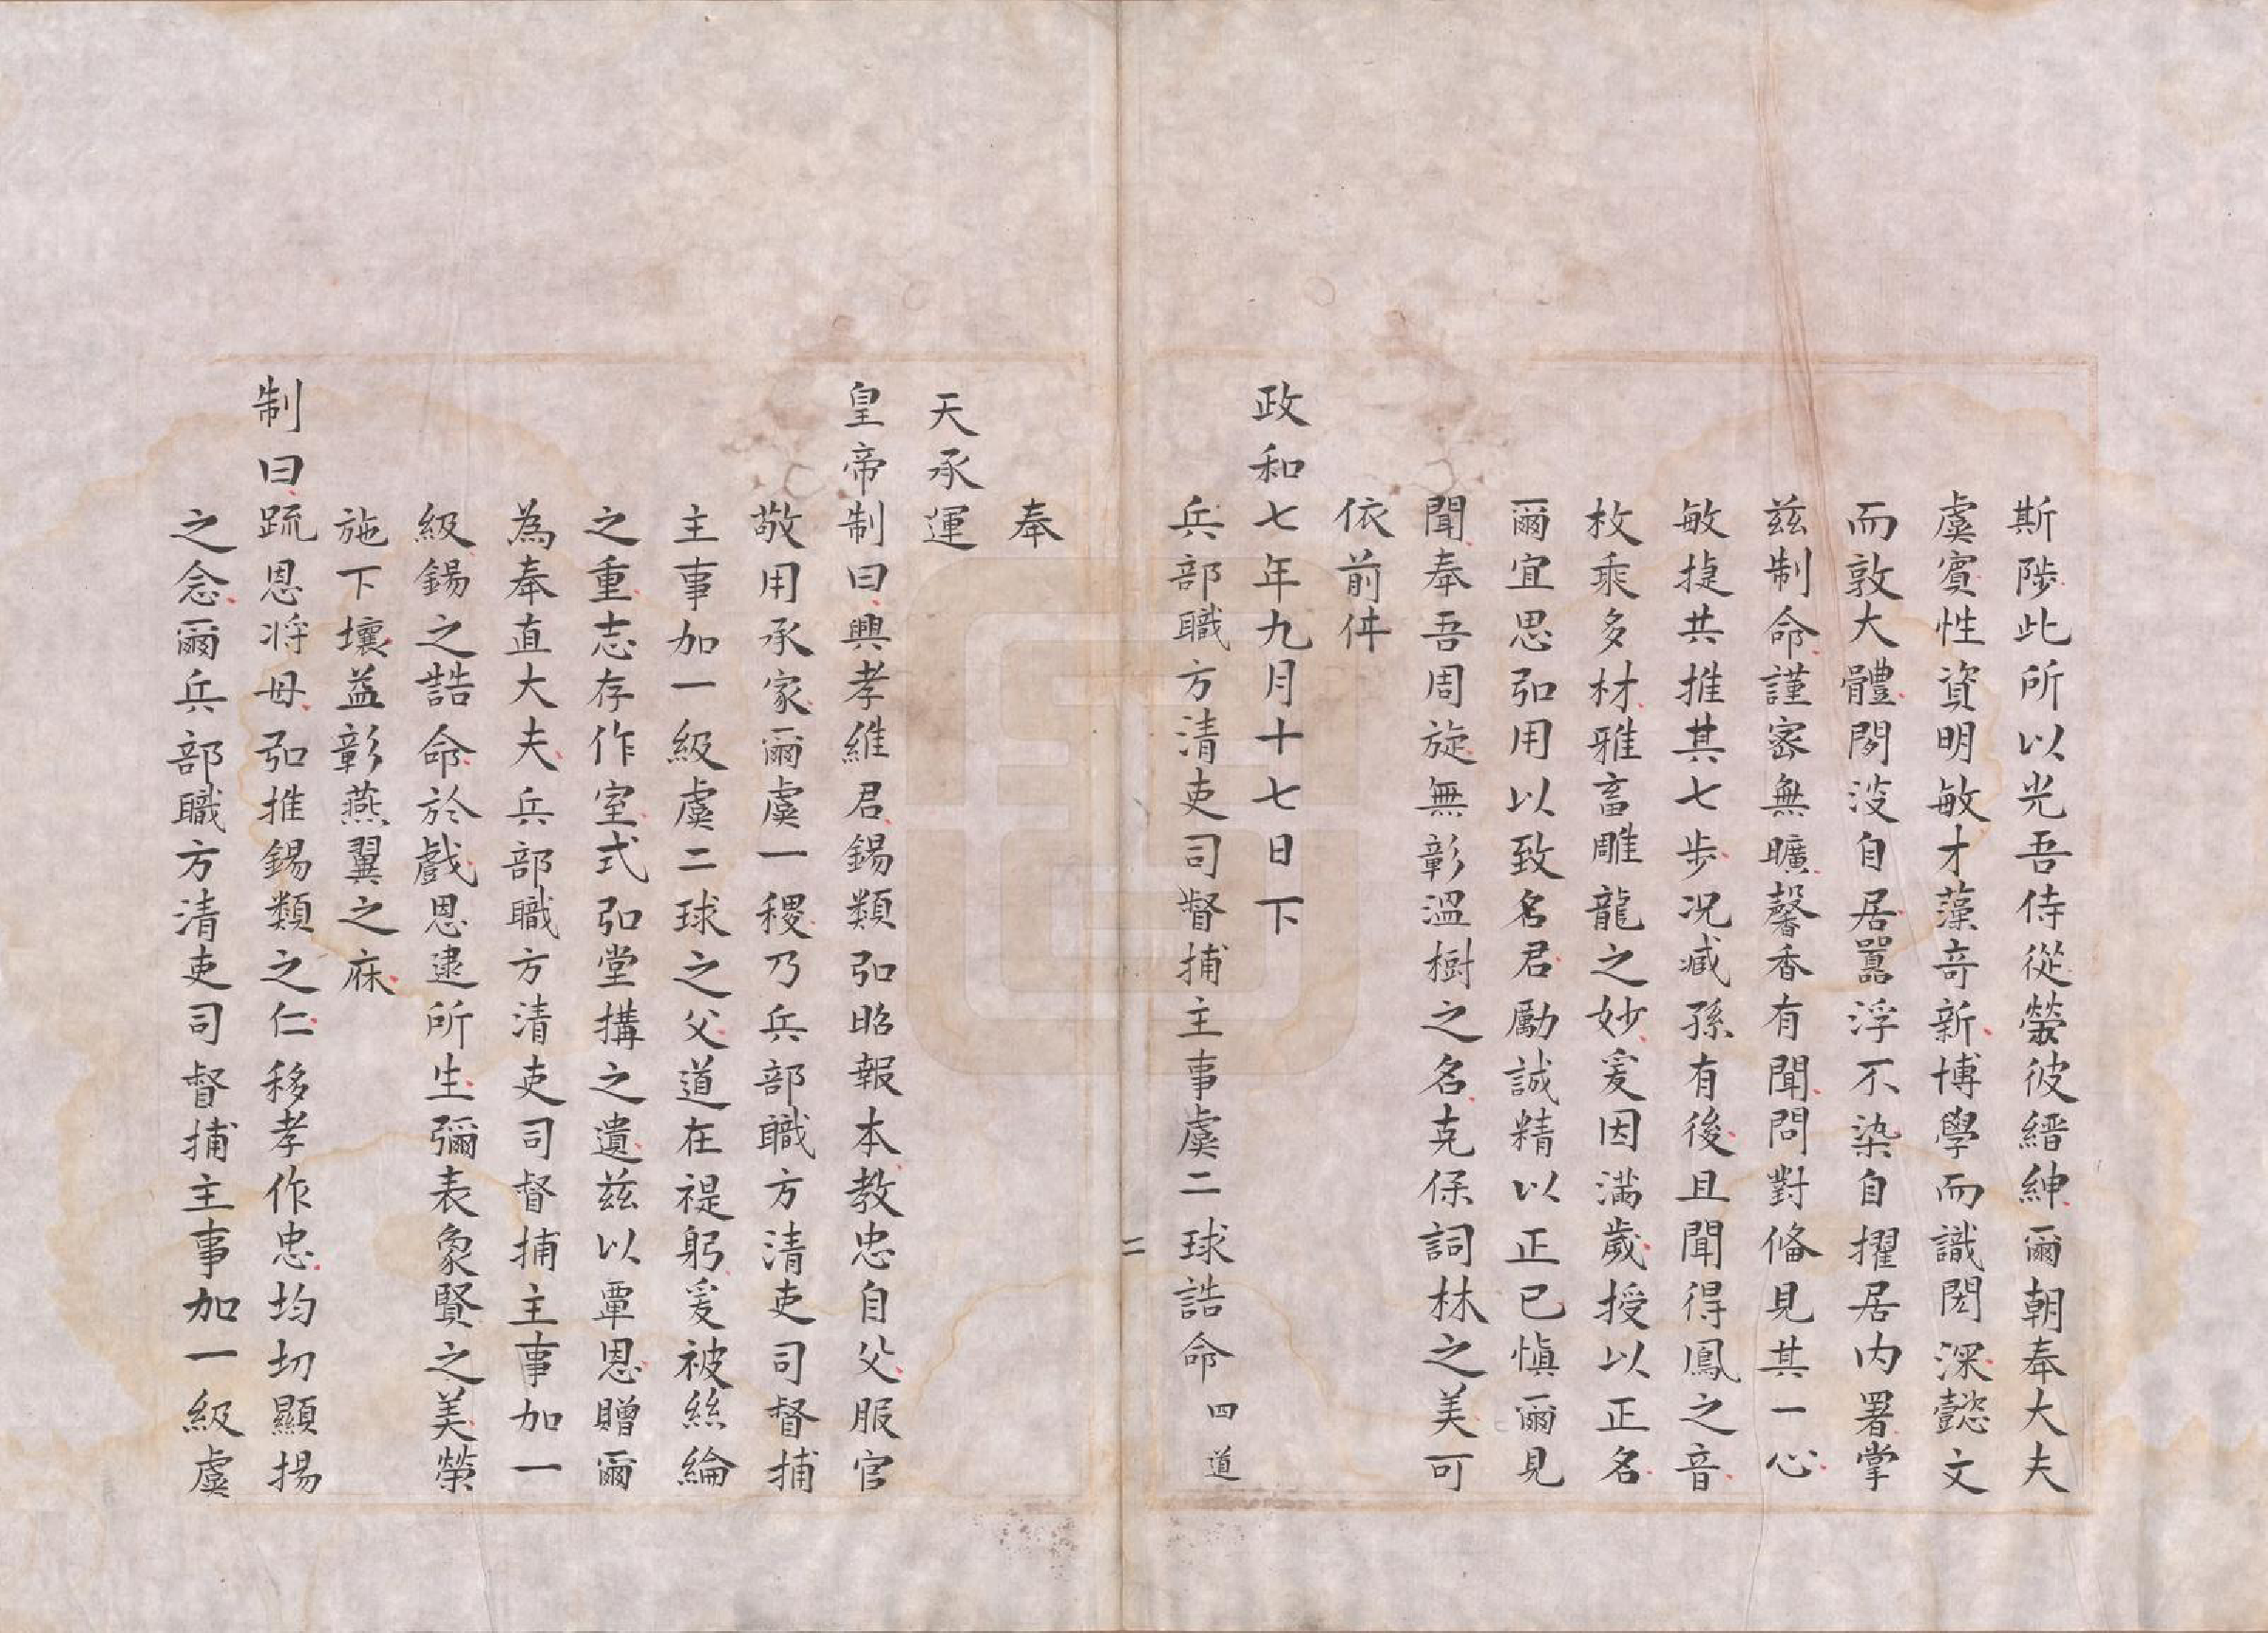 斯陟此所以光吾侍從榮彼縉紳爾朝奉大夫
虞賓性資明敏才藻奇新博學而識閎深懿文
而敦大體閎深自居囂浮不染自擢居内署掌
兹制命謹密無曠馨香有聞問對俻見其一心
敏捷共推其七步况臧孫有後且聞得鳳之音
枚乘多材雅畜雕龍之妙爰因滿歲授以正名
爾宜思弘用以致名君勵誠精以正已慎爾見
聞奉吾周旋無彰溫樹之名克保詞林之美可
依前件
政和七年九月十七日下
兵部職方清吏司督捕主事虞二球誥命四道
二
奉
天承運
皇帝制曰興孝維君錫類弘昭報本教忠自父服官
敬用承家爾虞一稷乃兵部職方清吏司督捕
主事加一級虞二球之父道在禔躬爰被絲綸
之重志存作室式弘堂搆之遺兹以覃恩贈爾
為奉直大夫兵部職方清吏司督捕主事加一
級錫之誥命於戲恩逮所生彌表象賢之美榮
施下壤益彰燕翼之庥
制曰疏恩将母弘推錫類之仁移孝作忠均切顯揚
之念爾兵部職方清吏司督捕主事加一級虞